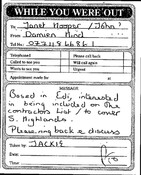 WHILE YOU WERE OUT
To Janet Hooper / John?
From Damien Hind
Tel No. 07721846861
Telephoned
Please call back
Called to see you
Will call again
Wants to see you
Urgent
Appointment made for
MESSAGE
Based in Edi, interested
in being included on the
Contractors List / to cover
S. Highlands.
Please ring back & discuss
Taken by JACKIE
Date